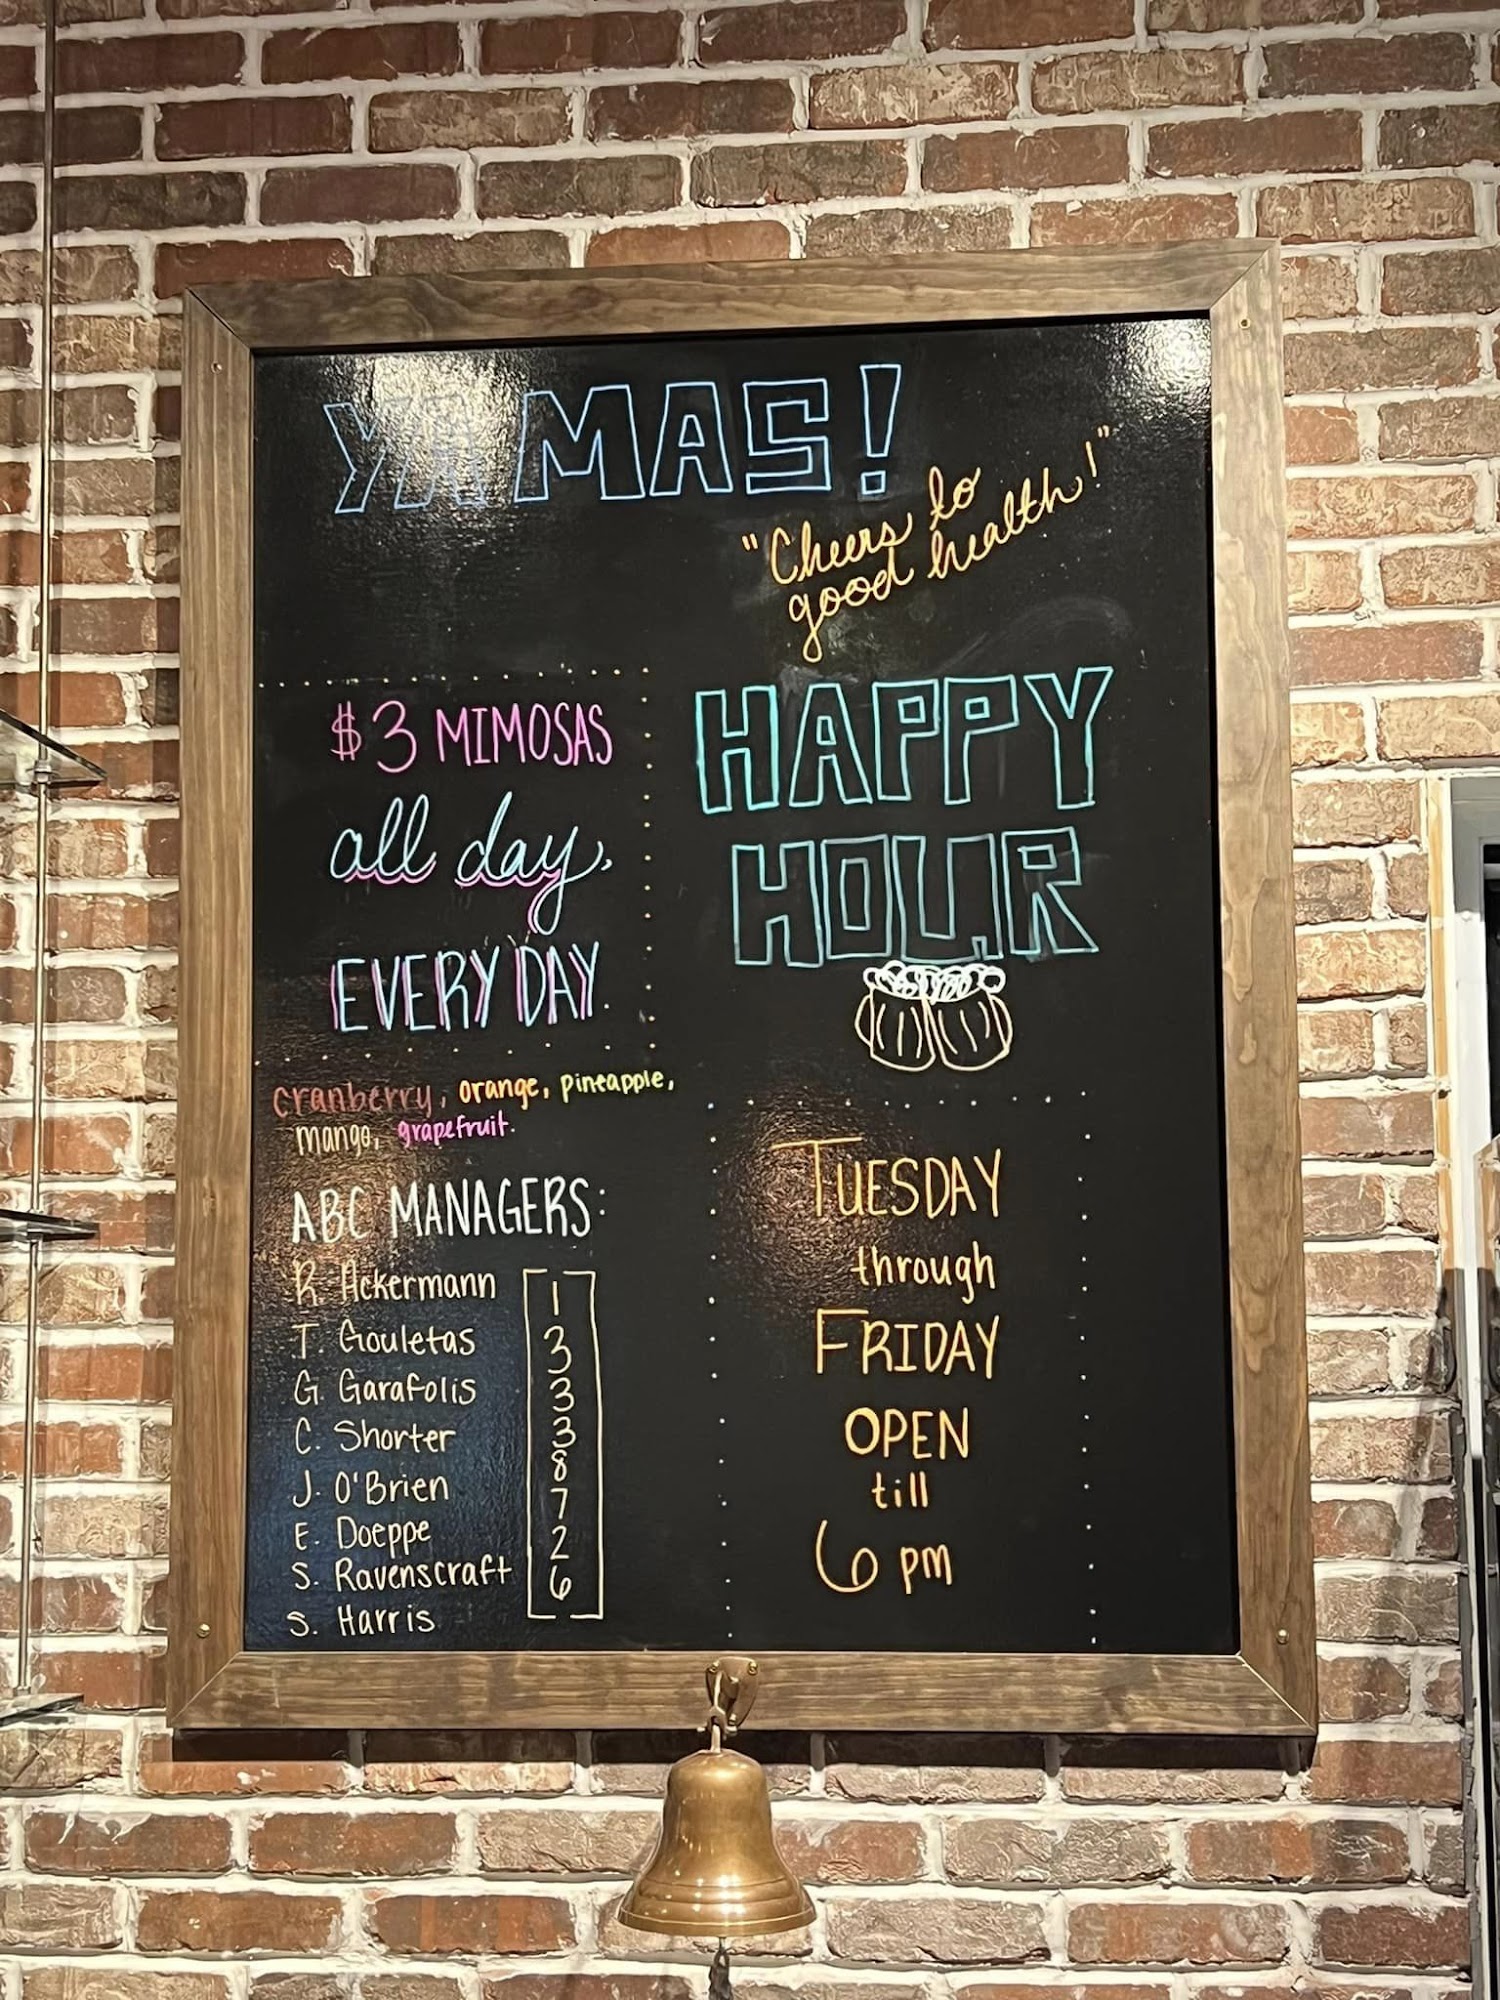 YA MAS!
"Cheers to
good health!"
$3 MIMOSAS
all day,
EVERY DAY.
cranberry, orange, pineapple,
mango, grapefruit.
ABC MANAGERS:
R. Ackermann
T. Gouletas
G. Garafolis
C. Shorter
J. O'Brien
E. Doeppe
S. Ravenscraft
S. Harris
1
3
3
3
8
7
2
6
HAPPY
HOUR
TUESDAY
through
FRIDAY
OPEN
till
6 pm